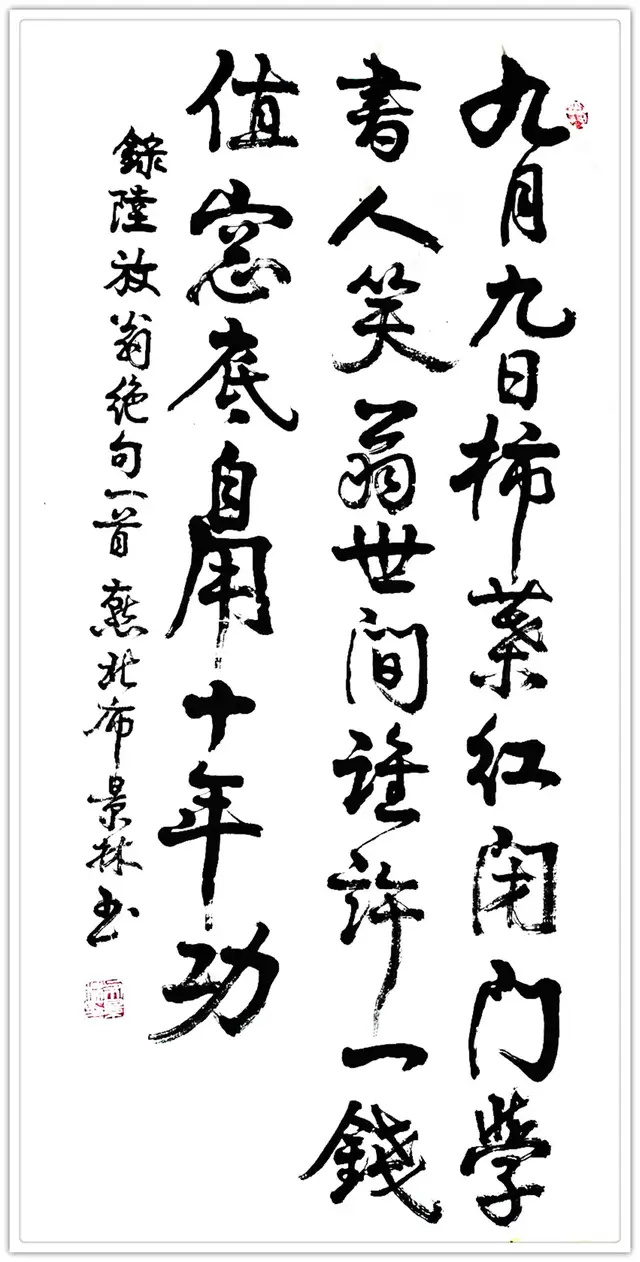 九月九日柿葉红闭门学
書人笑翁世间誰許一錢
值窓底自用十年功
錄陸放翁绝句一首 燕北布景林书